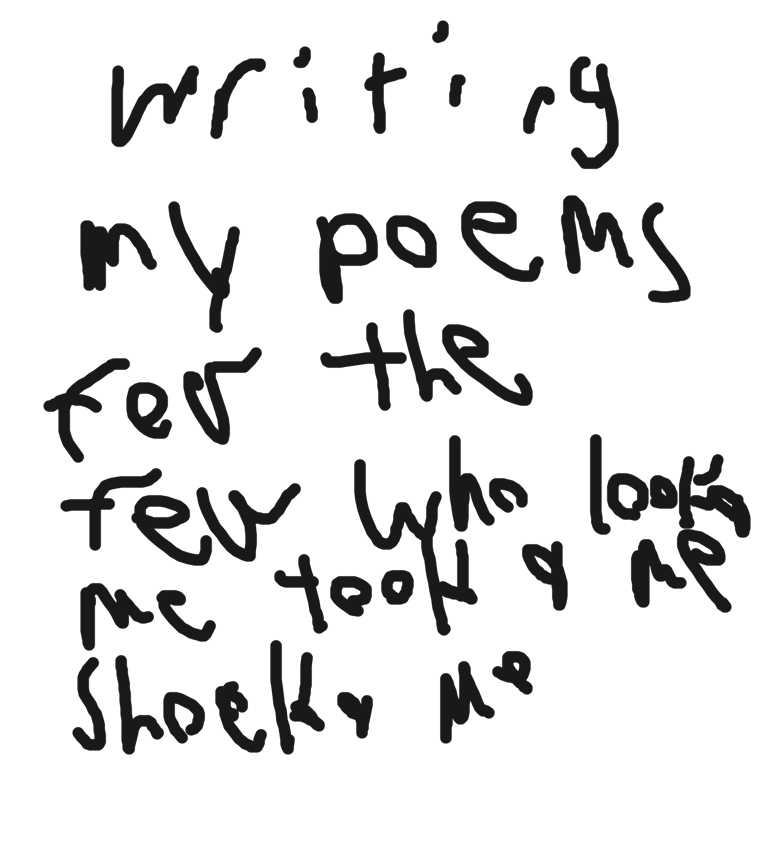 writing
my poems
for the
few who looka
me tooka me
shooka me